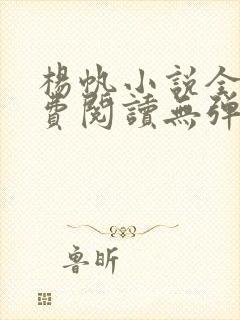 楊帆小說全
費閱讀無彈
魯昕